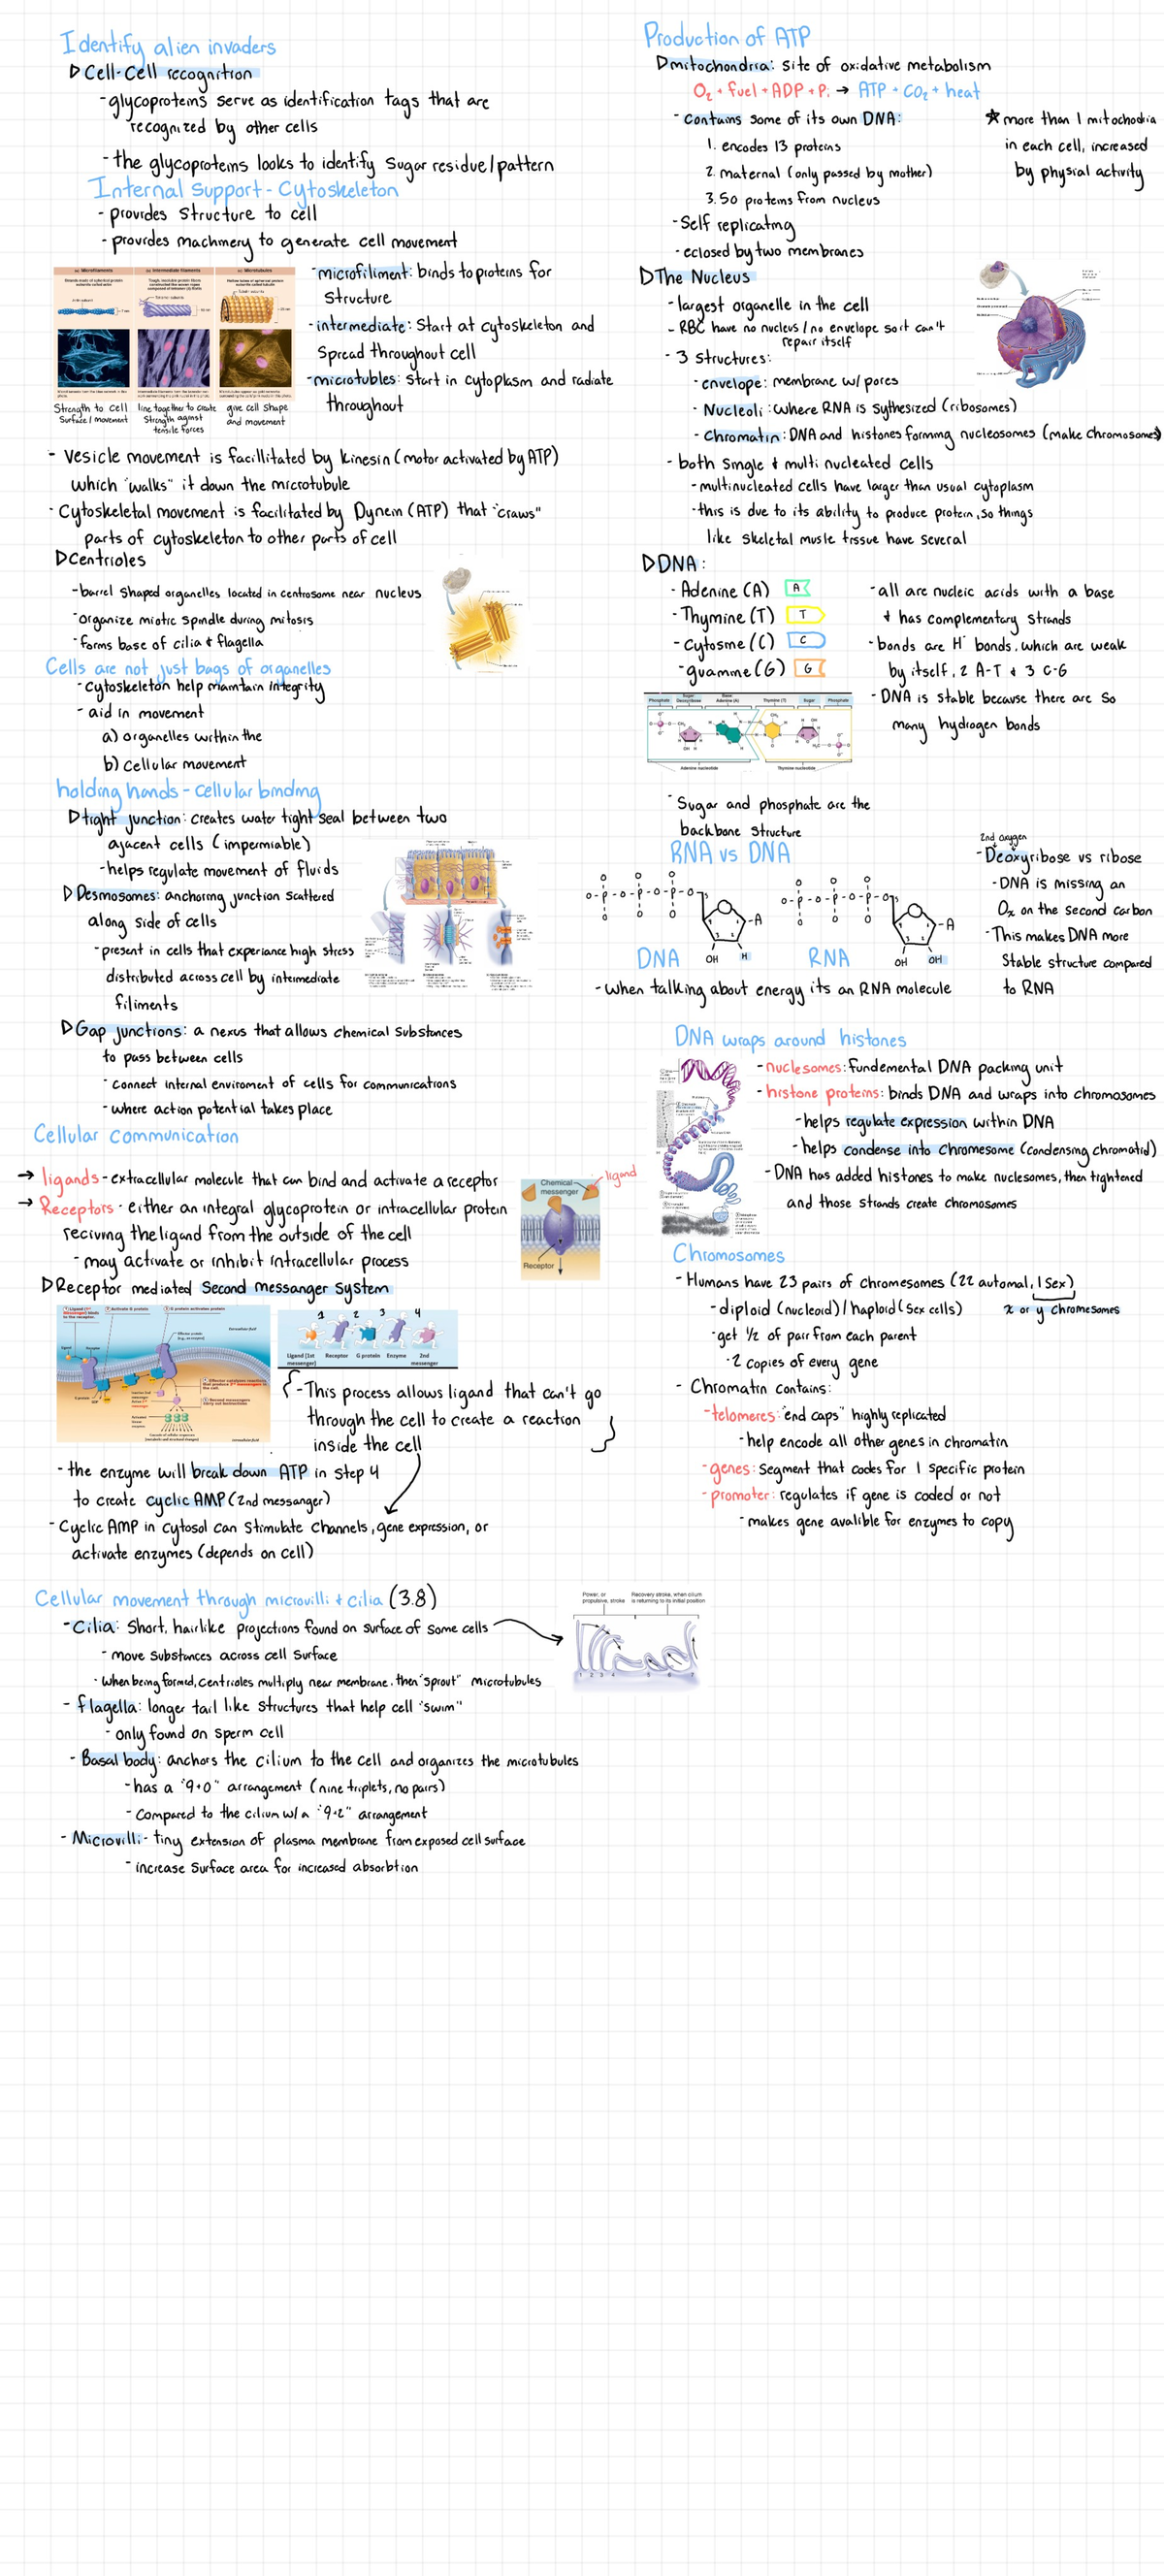 Identify alien invaders
Cell-Cell recognition
-glycoproteins serve as identification tags that are
recognized by other cells
-the glycoproteins looks to identify sugar residue/pattern
Internal Support-Cytoskeleton
- provides Structure to cell
- provides machinery to generate cell movement
(a) Microfilaments
(b) Intermediate filaments
(c) Microtubules
Strength to cell
Surface/movement
line together to create
Strength against
tensile forces
give cell shape
and movement
-microfiliment: binds to proteins for
Structure
-intermediate: Start at cytoskeleton and
Spread throughout cell
-microtubles: start in cytoplasm and radiate
throughout
- Vesicle movement is facillitated by kinesin (motor activated by ATP)
which "walks" it down the microtubule
- Cytoskeletal movement is facilitated by Dynein (ATP) that "craws"
parts of cytoskeleton to other parts of cell
Centrioles
-barrel shaped organelles located in centrosome near nucleus
-organize miotic spindle during mitosis
-forms base of cilia & flagella
Cells are not just bags of organelles
-cytoskeleton help maintain integrity
- aid in movement
a) organelles within the
b) cellular movement
holding hands - cellular binding
tight junction: creates water tight seal between two
ajacent cells (impermiable)
-helps regulate movement of fluids
Desmosomes: anchoring junction scattered
along side of cells
-present in cells that experiance high stress
distributed across cell by intermediate
filiments
Gap junctions: a nexus that allows chemical substances
to pass between cells
- connect internal enviroment of cells for communications
-where action potential takes place
Cellular communication
→ ligands-extracellular molecule that can bind and activate a receptor
→ Receptors - either an integral glycoprotein or intracellular protein
reciving the ligand from the outside of the cell
- may activate or inhibit intracellular process
Chemical
messenger
ligand
Receptor
Receptor mediated Second messanger system
1 2 3 4
Ligand (1st
messenger)
Receptor
G protein
Enzyme
2nd
messenger
-This process allows ligand that can't go
through the cell to create a reaction
inside the cell
- the enzyme will break down ATP in step 4
to create cyclic AMP (2nd messanger)
- Cyclic AMP in cytosol can stimulate channels, gene expression, or
activate enzymes (depends on cell)
Cellular movement through microvilli & cilia (3.8)
-Cilia: Short, hairlike projections found on surface of some cells
- move substances across cell surface
- when being formed, centrioles multiply near membrane, then "sprout" microtubules
- flagella: longer tail like structures that help cell "swim"
- only found on sperm cell
- Basal body: anchors the cilium to the cell and organizes the microtubules
-has a "9+0" arrangement (nine triplets, no pairs)
- Compared to the cilium w/a "9+2" arrangement
- Microvilli- tiny extension of plasma membrane from exposed cell surface
- increase Surface area for increased absorbtion
Power, or
propulsive, stroke
Recovery stroke, when cilium
is returning to its initial position
1 2 3 4 5 6 7
Production of ATP
mitochondria: site of oxidative metabolism
O₂ + fuel + ADP + Pᵢ → ATP + CO₂ + heat
- contains some of its own DNA:
1. encodes 13 proteins
2. maternal (only passed by mother)
3. 50 proteins from nucleus
-Self replicating
- eclosed by two membranes
★ more than 1 mitochodia
in each cell, increased
by physial activity
The Nucleus
- largest organelle in the cell
- RBC have no nucleus/no envelope so it can't
repair itself
- 3 Structures:
- envelope: membrane w/ pores
- Nucleoli: where RNA is sythesized (ribosomes)
- Chromatin: DNA and histones forming nucleosomes (make chromosomes)
- both single & multi nucleated cells
- multinucleated cells have larger than usual cytoplasm
-this is due to its ability to produce protein, so things
like skeletal musle tissue have several
DNA:
- Adenine (A) A
- Thymine (T) T
- Cytosine (C) C
- guanine (G) G
-all are nucleic acids with a base
& has complementary strands
- bonds are H⁺ bonds, which are weak
by itself, 2 A-T & 3 C-G
- DNA is stable because there are so
many hydrogen bonds
Phosphate
Sugar:
Deoxyribose
Base:
Adenine (A)
Thymine (T)
Sugar
Phosphate
Adenine nucleotide
Thymine nucleotide
- Sugar and phosphate are the
backbone structure
RNA vs DNA
DNA
OH H
RNA
OH OH
-when talking about energy its an RNA molecule
2nd oxygen
-Deoxyribose vs ribose
-DNA is missing an
Oₓ on the second carbon
-This makes DNA more
Stable structure compared
to RNA
DNA wraps around histones
- nuclesomes: fundemental DNA packing unit
- histone proteins: binds DNA and wraps into chromosomes
-helps regulate expression within DNA
-helps condense into chromesome (condensing chromatid)
-DNA has added histones to make nuclesomes, then tightened
and those strands create chromosomes
Chromosomes
- Humans have 23 pairs of chromesomes (22 automal, 1 Sex)
x or y chromesomes
-diploid (nucleoid)/haploid (sex cells)
-get ½ of pair from each parent
-2 copies of every gene
- Chromatin contains:
-telomeres: "end caps" highly replicated
-help encode all other genes in chromatin
-genes: segment that codes for 1 specific protein
-promoter: regulates if gene is coded or not
-makes gene avalible for enzymes to copy